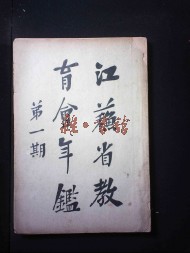 江蘇省教
育會年鑑
第一期